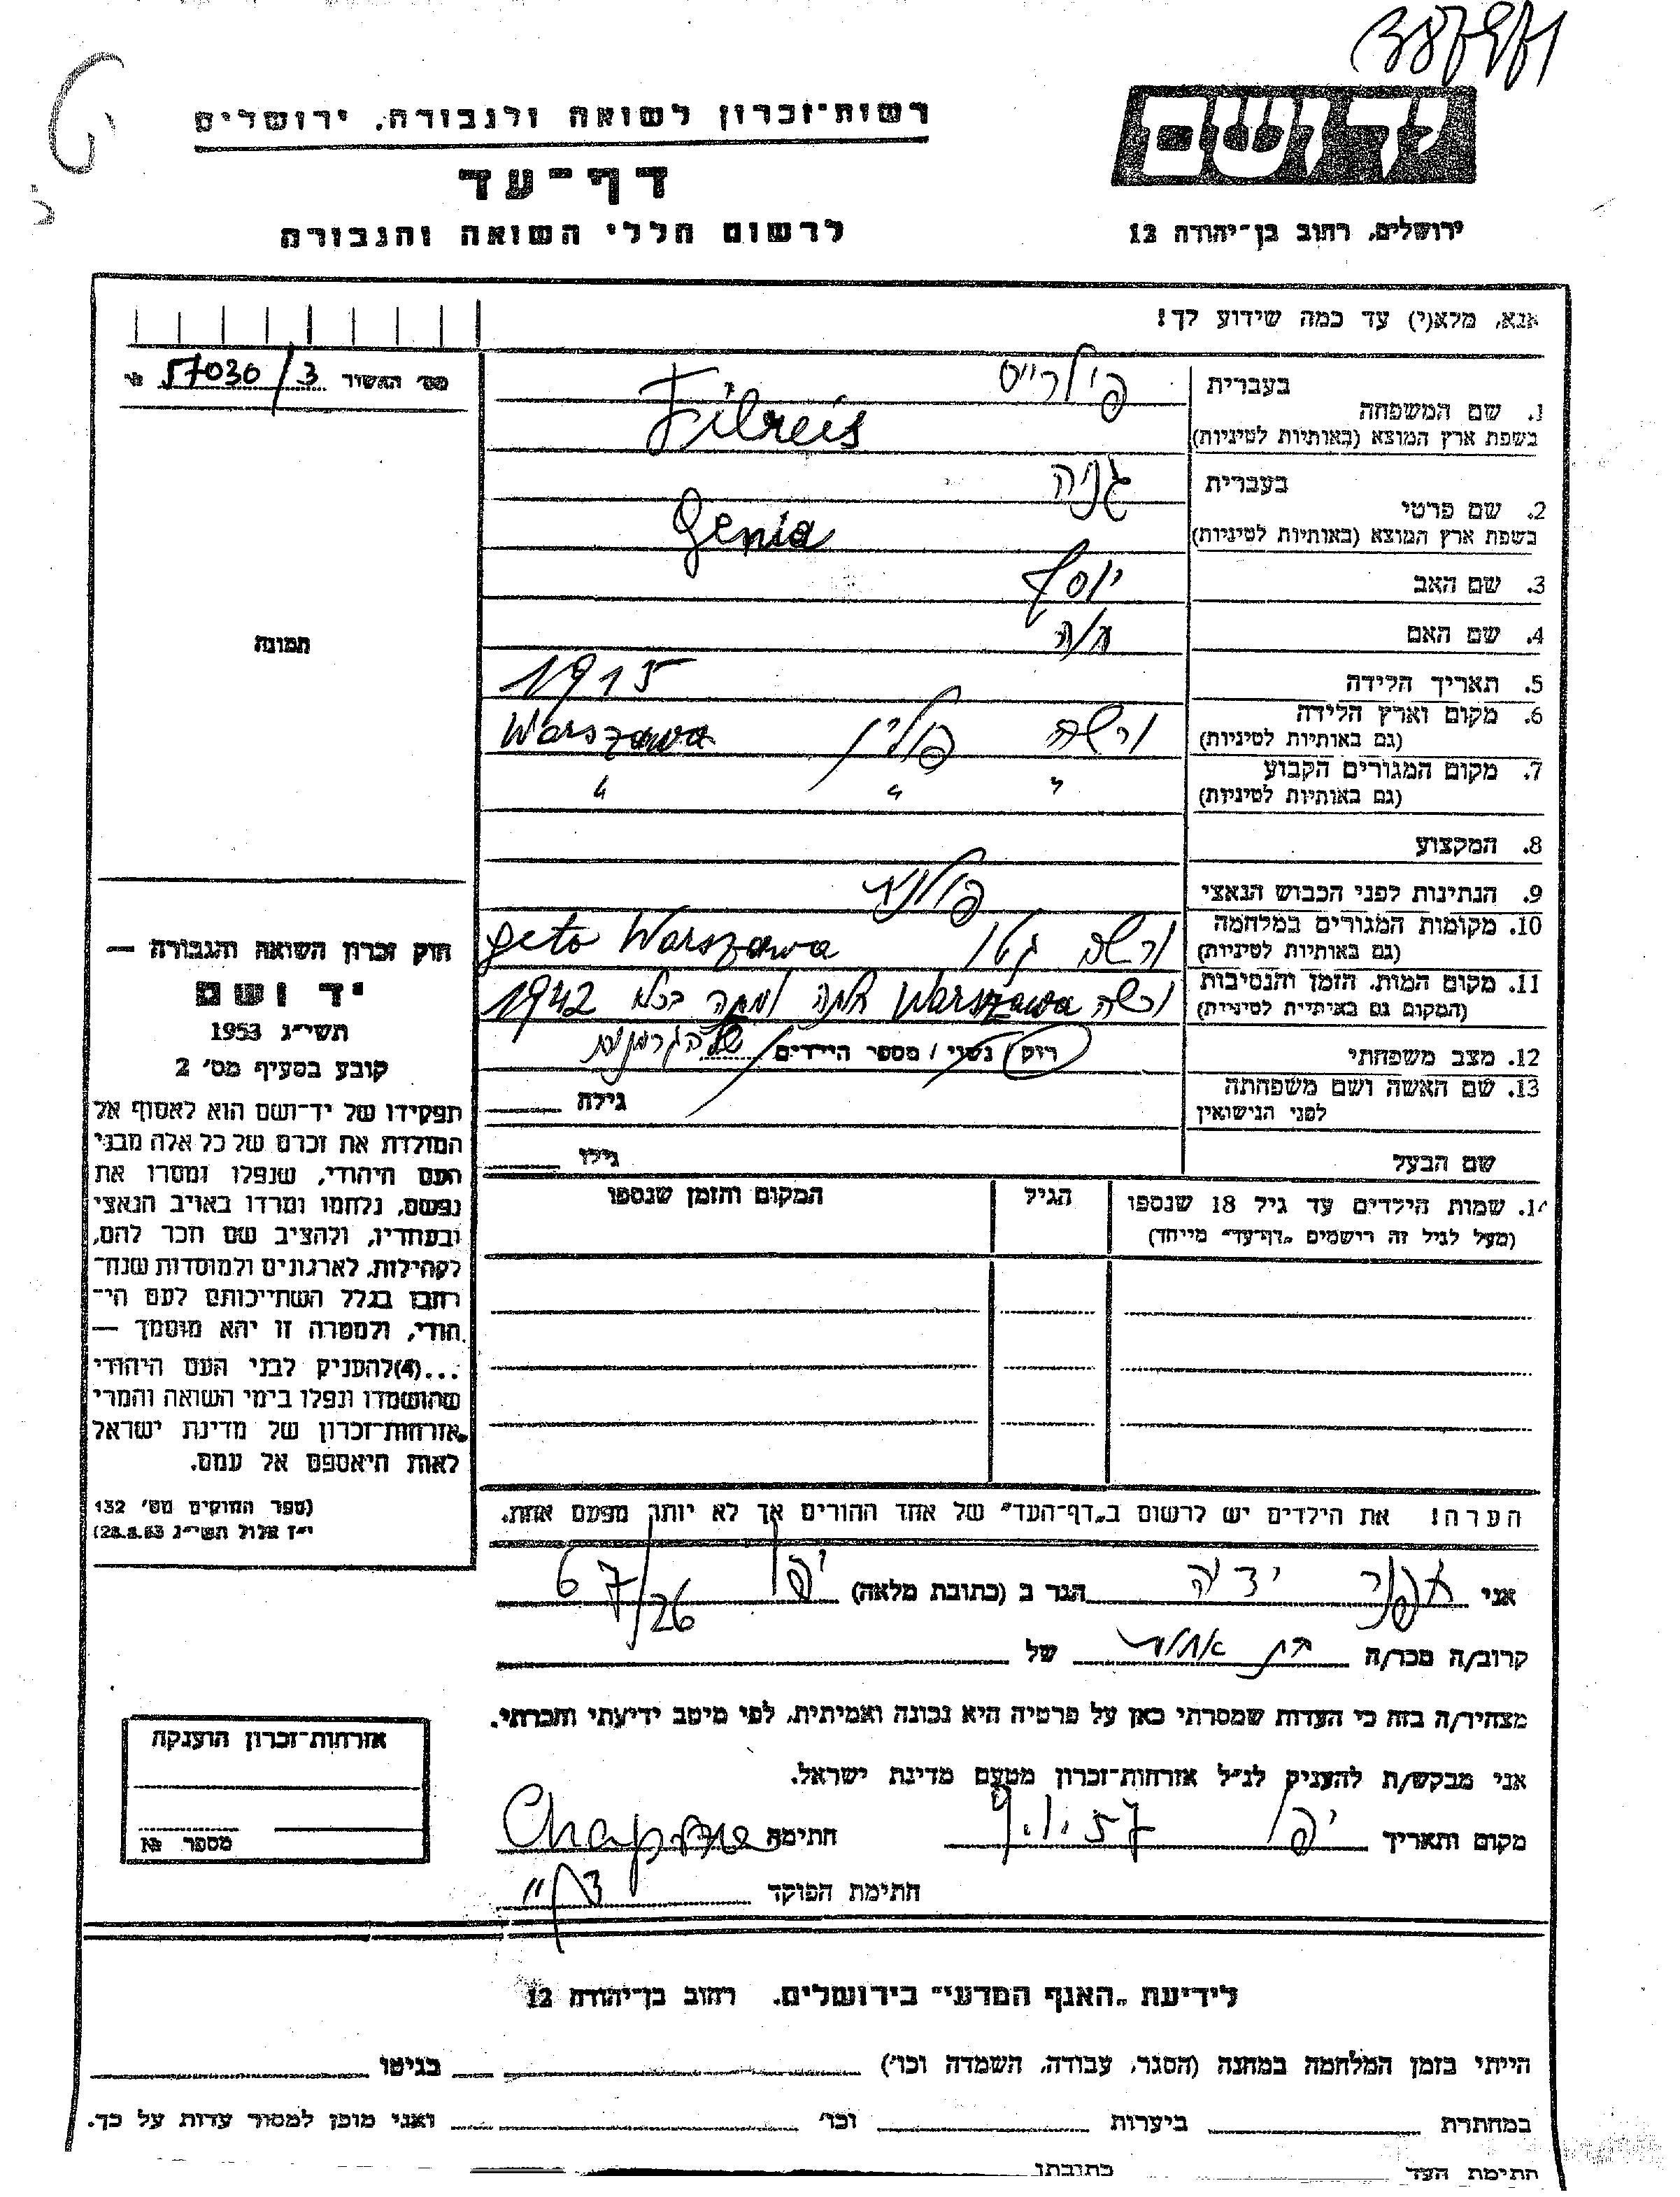 יד ושם
ירושלים, רחוב בן־יהודה 12
רשות־זכרון לשואה ולגבורה, ירושלים
דף־עד
לרשום חללי השואה והגבורה
אנא, מלא(י) עד כמה שידוע לך!
מס׳ האשור 57030/3
1. שם המשפחה בעברית פילרייס
בשפת ארץ המוצא (באותיות לטיניות) Filreis
2. שם פרטי בעברית גניה
בשפת ארץ המוצא (באותיות לטיניות) Genia
3. שם האב יוסף
4. שם האם
5. תאריך הלידה 1915
6. מקום וארץ הלידה ורשה פולין Warszawa
(גם באותיות לטיניות)
7. מקום המגורים הקבוע " " "
(גם באותיות לטיניות)
8. המקצוע
9. הנתינות לפני הכבוש הנאצי פולנית
10. מקומות המגורים במלחמה ורשה גטו geto Warszawa
(גם באותיות לטיניות)
11. מקום המות, הזמן והנסיבות ורשה Warszawa חלתה ומתה בכלא 1942
(המקום גם באותיות לטיניות)
של הגרמנים
12. מצב משפחתי רווק / נשוי / מספר הילדים
13. שם האשה ושם משפחתה גילה
לפני הנישואין
שם הבעל גילו
14. שמות הילדים עד גיל 18 שנספו הגיל המקום והזמן שנספו
(מעל לגיל זה רישמים „דף־עד" מייחד)
הערה! את הילדים יש לרשום ב„דף־העד" של אחד ההורים אך לא יותר מפעם אחת.
תמונה
חוק זכרון השואה והגבורה —
יד ושם
תשי״ג 1953
קובע בסעיף מס׳ 2
תפקידו של יד־ושם הוא לאסוף אל
המולדת את זכרם של כל אלה מבני
העם היהודי, שנפלו ומסרו את
נפשם, נלחמו ומרדו באויב הנאצי
ובעוזריו, ולהציב שם וזכר להם,
לקהילות, לארגונים ולמוסדות שנח־
רבו בגלל השתייכותם לעם הי־
הודי, ולמטרה זו יהא מוסמך —
...(4) להעניק לבני העם היהודי
שהושמדו ונפלו בימי השואה והמרי
אזרחות־זכרון של מדינת ישראל
לאות היאספם אל עמם.
(ספר החוקים מס׳ 132
י״ז אלול תשי״ג 28.8.53)
אני הגר ב (כתובת מלאה) יפו 67/26
קרוב/ה מכר/ה בת של
מצהיר/ה בזה כי העדות שמסרתי כאן על פרטיה היא נכונה ואמיתית, לפי מיטב ידיעתי והכרתי.
אני מבקש/ת להעניק לנ״ל אזרחות־זכרון מטעם מדינת ישראל.
מקום ותאריך יפו 9.1.57 חתימה
חתימת הפוקד
אזרחות־זכרון הוענקה
מספר №
לידיעת „האגף המדעי" בירושלים, רחוב בן־יהודה 12
הייתי בזמן המלחמה במחנה (הסגר, עבודה, השמדה וכו׳) בגיטו
במחתרת ביערות וכו׳ ואני מוכן למסור עדות על כך.
חתימת העד כתובתו